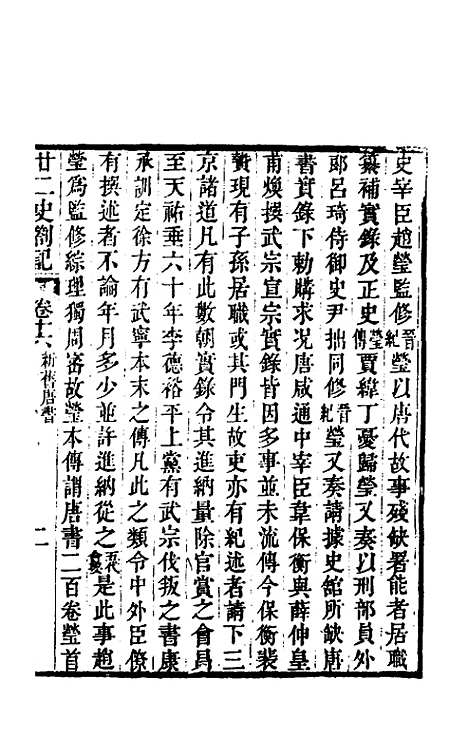 史宰臣趙瑩監修晉紀瑩以唐代故事殘缺署能者居職
纂補實錄及正史瑩傳賈緯丁憂歸瑩又奏以刑部員外
郎呂琦侍御史尹拙同修晉紀瑩又奏請據史館所缺唐
書實錄下勅購求况唐咸通中宰臣韋保衡與薛伸皇
甫煥撰武宗宣宗實錄皆因多事並未流傳今保衡裴
贄現有子孫居職或其門生故吏亦有紀述者請下三
京諸道凡有此數朝實錄令其進納量除官賞之會昌
至天祐垂六十年李德裕平上黨有武宗伐叛之書康
承訓定徐方有武寧本末之傳凡此之類令中外臣僚
有撰述者不論年月多少並許進納從之五代會要是此事趙
瑩為監修綜理獨周密故瑩本傳謂唐書二百卷瑩首
廿二史劄記 卷十六 新舊唐書 二